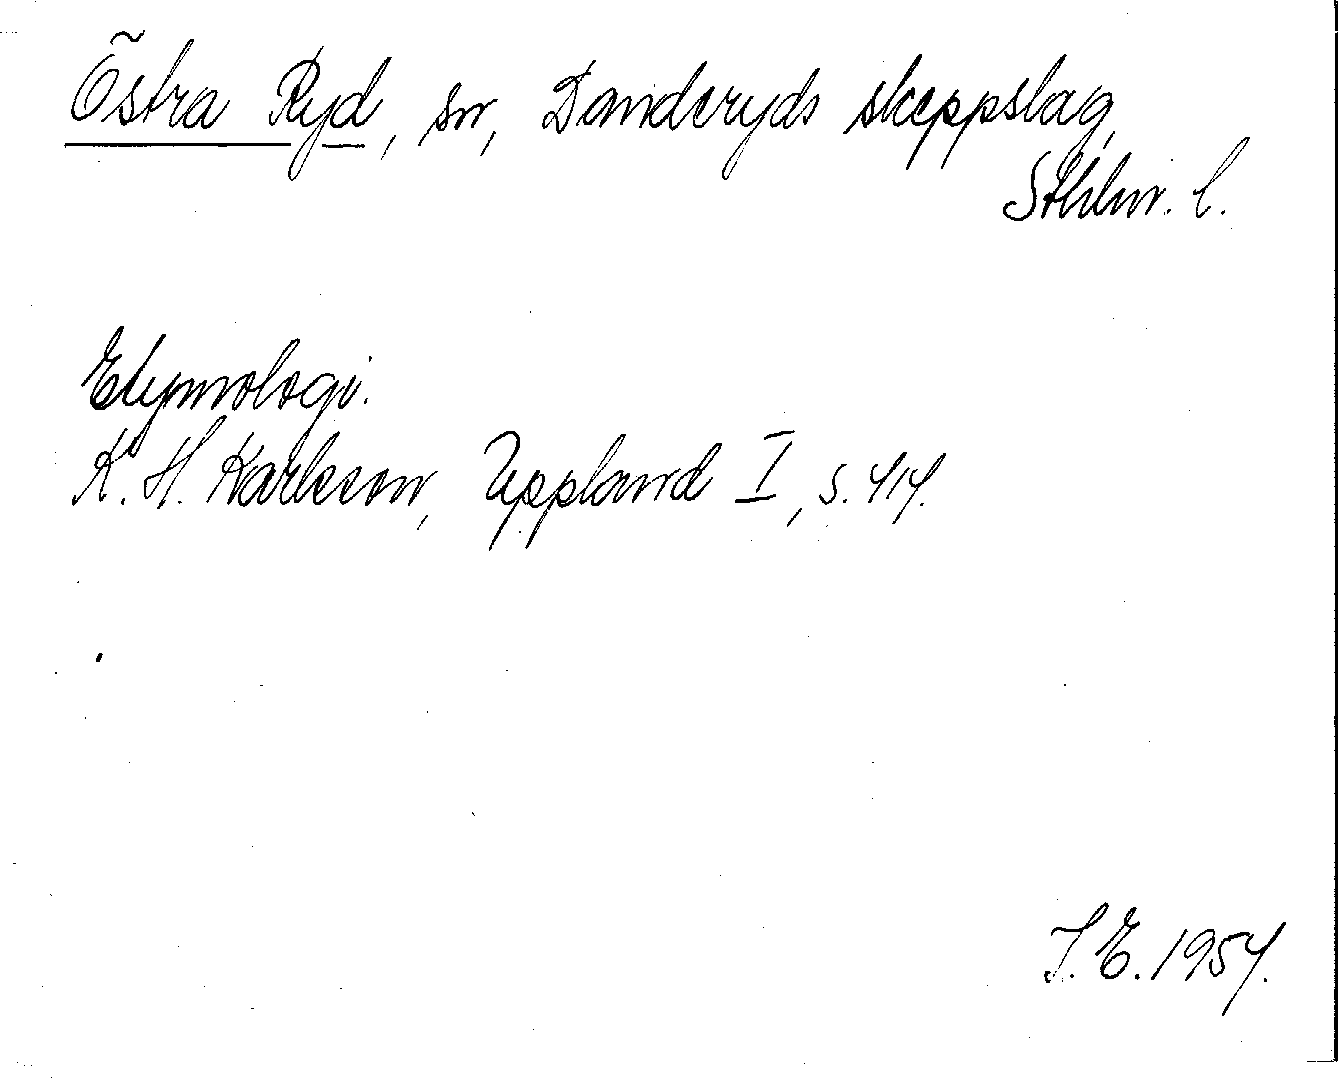 Östra Ryd, sn, Danderyds skeppslag,
Sthlm. l.
Etymologi.
K. H. Karlsson, Uppland I, s. 414.
I. E. 1954.